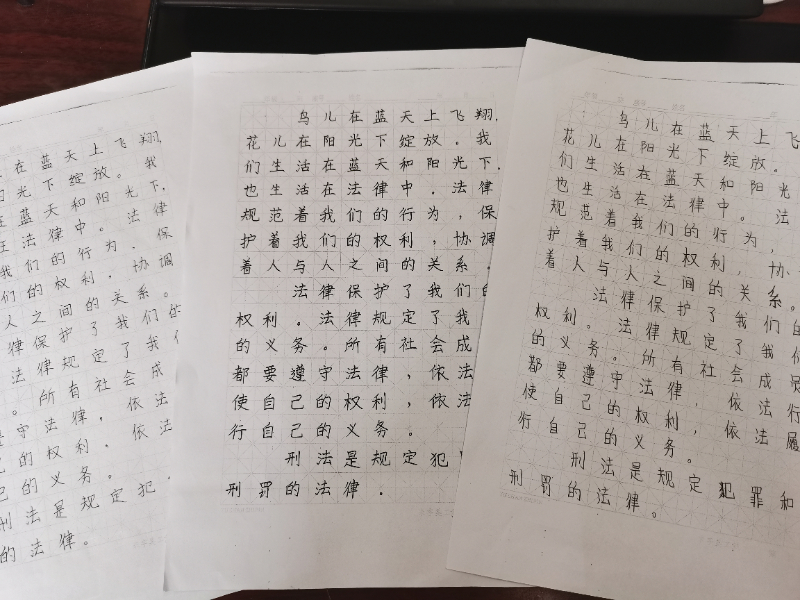 在蓝天上飞翔,
光下绽放。我
在蓝天和阳光下,
法律中。法律
我们的行为、保
们的权利,协调
人之间的关系。
律保护了我们的
法律规定了我们
。所有社会成
守法律,依法
的权利、依法
己的义务。
刑法是规定犯
的法律。
鸟儿在蓝天上飞翔,
花儿在阳光下绽放。我
们生活在蓝天和阳光下,
也生活在法律中.法律
规范着我们的行为,保
护着我们的权利,协调
着人与人之间的关系。
法律保护了我们的
权利。法律规定了我
的义务。所有社会成
都要遵守法律,依法
使自己的权利,依法
行自己的义务。
刑法是规定犯
刑罚的法律.
鸟儿在蓝天上
花儿在阳光下绽放。
们生活在蓝天和阳光
也生活在法律中。法
规范着我们的行为,
护着我们的权利,协
着人与人之间的关系。
法律保护了我们的
权利。法律规定了我们
的义务。所有社会成员
都要遵守法律,依法行
使自己的权利,依法履
行自己的义务。
刑法是规定犯罪和
刑罚的法律。